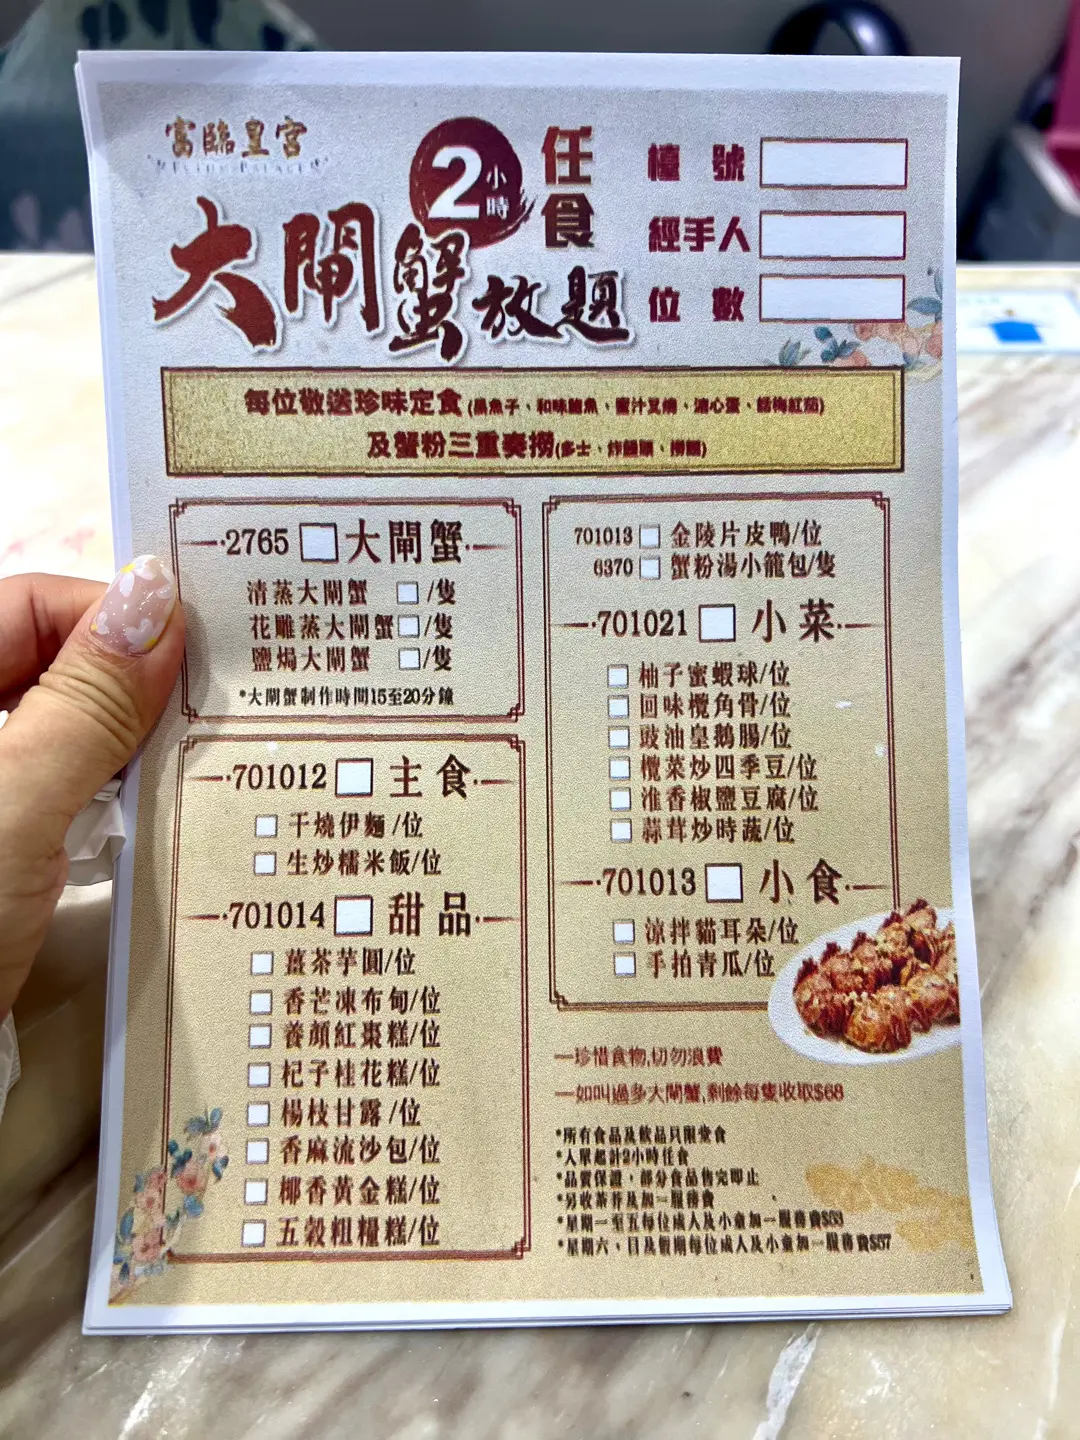 富臨皇宮
2小時
任食
大閘蟹放題
檯號
經手人
位數
每位敬送珍味定食(黑魚子、和味鮑魚、蜜汁叉燒、溏心蛋、話梅紅茄)
及蟹粉三重奏撈(多士、炸饅頭、撈麵)
2765 大閘蟹
清蒸大閘蟹 /隻
花雕蒸大閘蟹 /隻
鹽焗大閘蟹 /隻
*大閘蟹制作時間15至20分鐘
701012 主食
干燒伊麵/位
生炒糯米飯/位
701014 甜品
薑茶芋圓/位
香芒凍布甸/位
養顏紅棗糕/位
杞子桂花糕/位
楊枝甘露/位
香麻流沙包/位
椰香黃金糕/位
五穀粗糧糕/位
701013 金陵片皮鴨/位
6370 蟹粉湯小籠包/隻
701021 小菜
柚子蜜蝦球/位
回味欖角骨/位
豉油皇鵝腸/位
欖菜炒四季豆/位
淮香椒鹽豆腐/位
蒜茸炒時蔬/位
701013 小食
涼拌貓耳朵/位
手拍青瓜/位
一珍惜食物,切勿浪費
一如叫過多大閘蟹,剩餘每隻收取$68
*所有食品及飲品只限堂食
*入單起計2小時任食
*品質保證，部分食品售完即止
*另收茶芥及加一服務費
*星期一至五每位成人及小童加一服務費$53
*星期六、日及假期每位成人及小童加一服務費$57